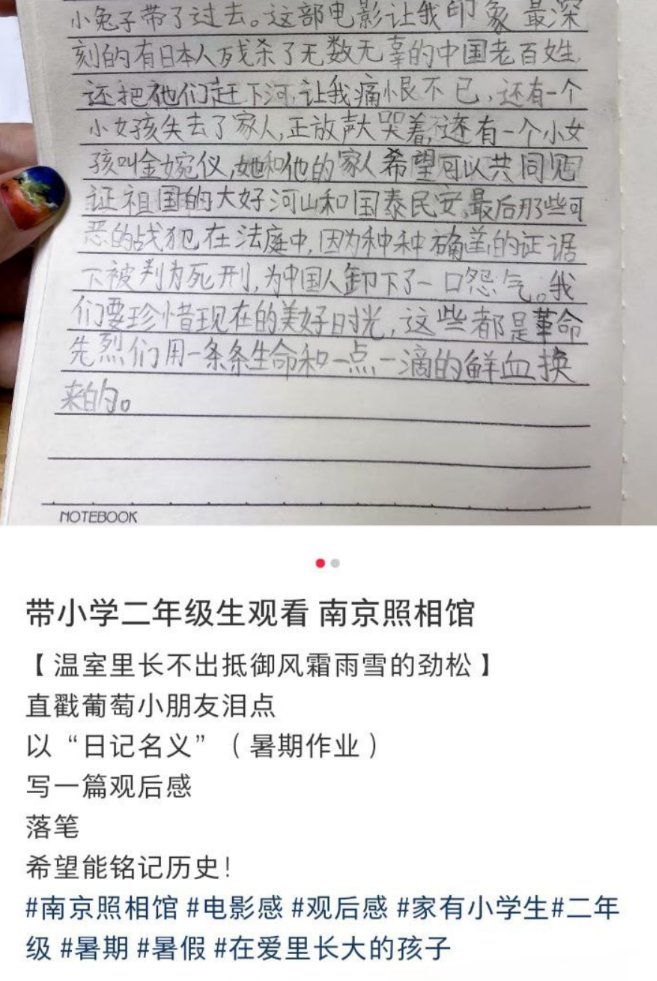 小兔子带了过去。这部电影让我印象最深
刻的有日本人残杀了无数无辜的中国老百姓,
还把他们赶下河,让我痛恨不已,还有一个
小女孩失去了家人,正放声大哭着,还有一个小女
孩叫金婉仪,她和他的家人希望可以共同见
证祖国的大好河山和国泰民安,最后那些可
恶的战犯,在法庭中,因为种种确凿的证据
下被判为死刑,为中国人卸下了一口怨气。我
们要珍惜现在的美好时光,这些都是革命
先烈们用一条条生命和一点一滴的鲜血换
来的。
NOTEBOOK
带小学二年级生观看 南京照相馆
【 温室里长不出抵御风霜雨雪的劲松 】
直戳葡萄小朋友泪点
以“日记名义”（暑期作业）
写一篇观后感
落笔
希望能铭记历史!
#南京照相馆 #电影感 #观后感 #家有小学生#二年
级 #暑期 #暑假 #在爱里长大的孩子